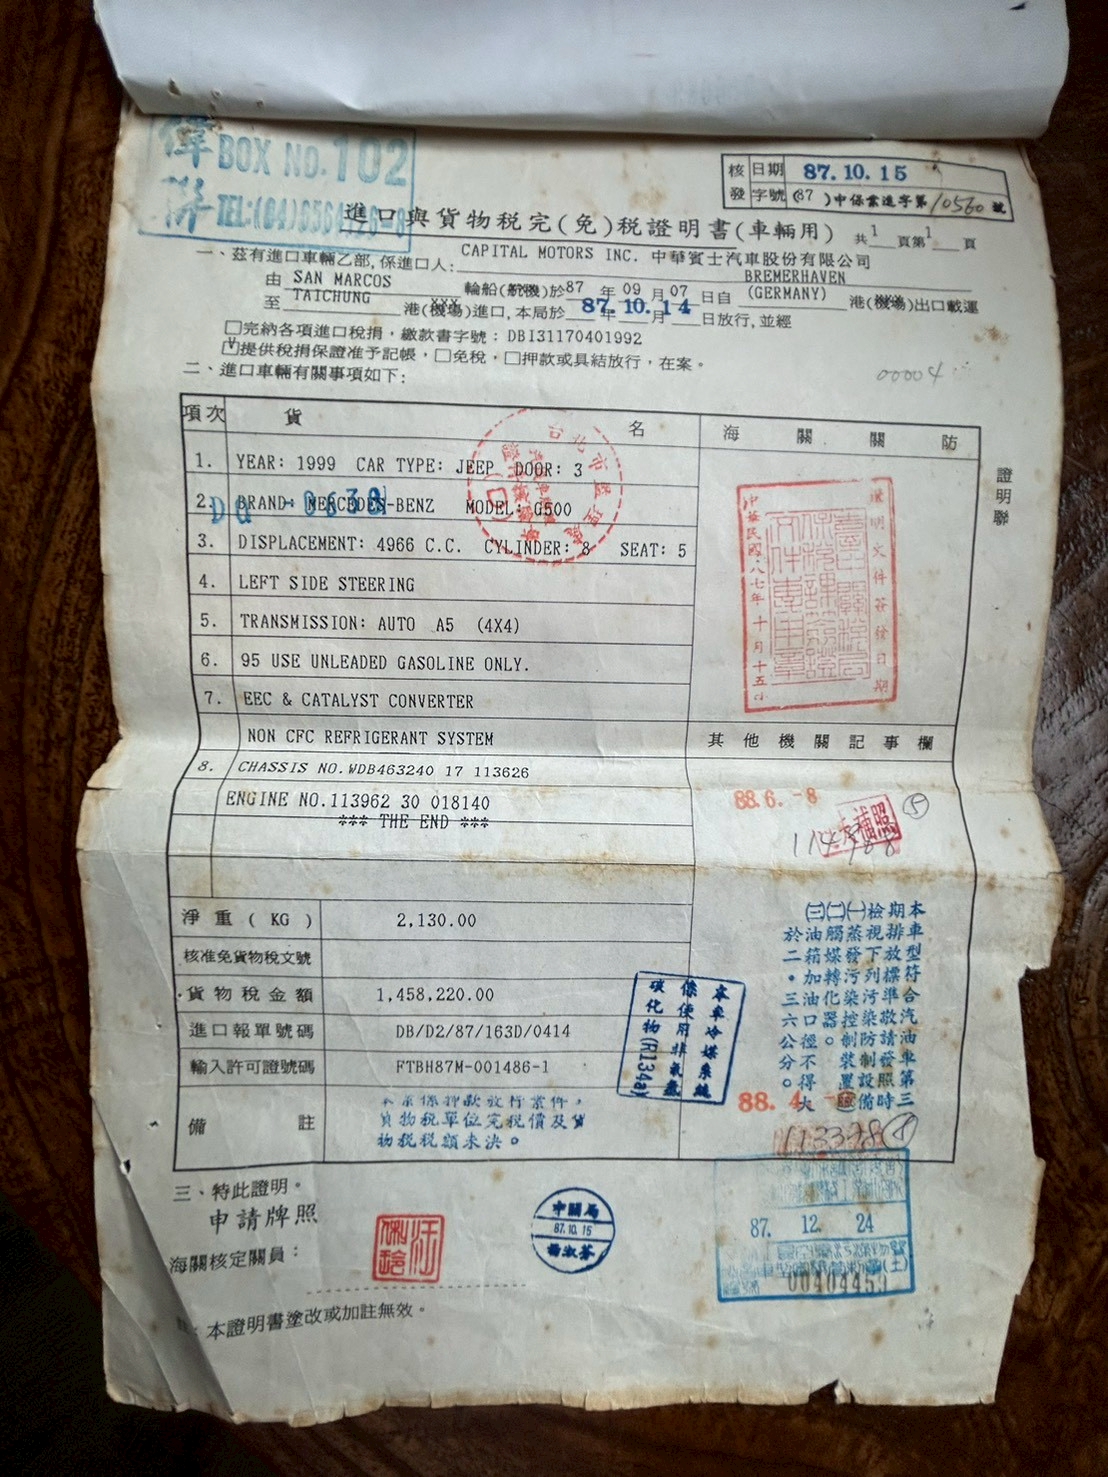 偉聯 BOX NO. 102
TEL:(04)6564126-8
核發 日期 87.10.15
字號 (87)中保業進字第10560號
進口與貨物稅完(免)稅證明書(車輛用)
共1頁第1頁
一、茲有進口車輛乙部,係進口人: CAPITAL MOTORS INC. 中華賓士汽車股份有限公司
由 SAN MARCOS 輪船(航機)於87年09月07日自 BREMERHAVEN (GERMANY) 港(機場)出口載運
至 TAICHUNG 港(機場)進口,本局於 87.10.14 年 月 日放行,並經
□完納各項進口稅捐,繳款書字號:DBI31170401992
☑提供稅捐保證准予記帳,□免稅,□押款或具結放行,在案。
二、進口車輛有關事項如下:
00004
項次 貨 名 海關關防
證明聯
1. YEAR: 1999 CAR TYPE: JEEP DOOR: 3
2. BRAND: MERCEDES-BENZ MODEL: G500
3. DISPLACEMENT: 4966 C.C. CYLINDER: 8 SEAT: 5
4. LEFT SIDE STEERING
5. TRANSMISSION: AUTO A5 (4X4)
6. 95 USE UNLEADED GASOLINE ONLY.
7. EEC & CATALYST CONVERTER
NON CFC REFRIGERANT SYSTEM
8. CHASSIS NO.WDB463240 17 113626
ENGINE NO.113962 30 018140
*** THE END ***
台北市監理處
證明文件簽發日期
中華民國八七年十月十五日
其他機關記事欄
88.6.-8
補照
⑤
淨重(KG) 2,130.00
核准免貨物稅文號
貨物稅金額 1,458,220.00
進口報單號碼 DB/D2/87/163D/0414
輸入許可證號碼 FTBH87M-001486-1
備註 本案係押款放行案件,
貨物稅單位完稅價及貨
物稅稅額未決。
本車冷媒系統
係使用非氟氯
碳化物(R134a)
本車型符合汽油車第三
期排放標準敬請發照時
檢視下列污染防制設備
㈠蒸發污染控制裝置
㈡觸媒轉化器。
㈢油箱加油口徑不得大
於二•三六公分。
88.4.
113378
三、特此證明。
申請牌照
海關核定關員:
中關局
87.10.15
楊淑芬
87. 12. 24
00404459
註:本證明書塗改或加註無效。